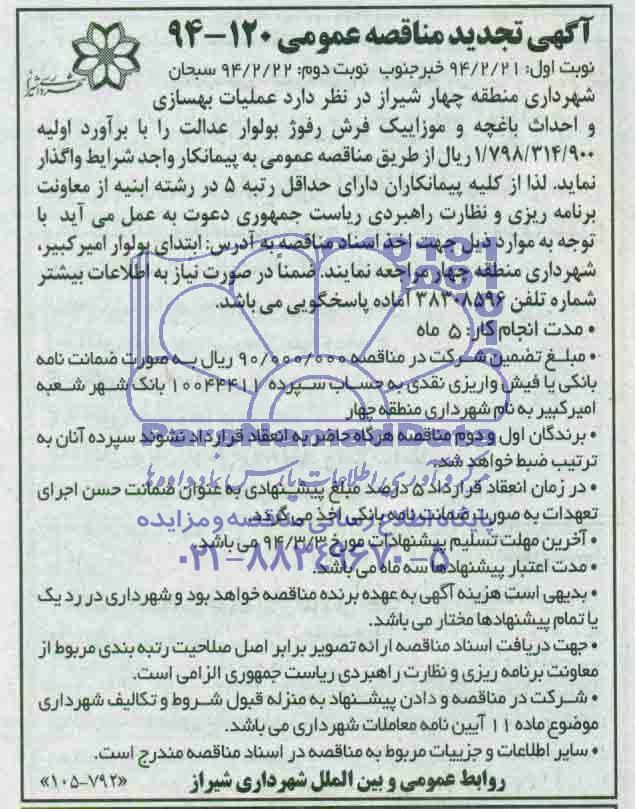 آگهی تجدید مناقصه عمومی ۱۲۰-۹۴
نوبت اول: ۹۴/۲/۲۱ خبر جنوب نوبت دوم: ۹۴/۲/۲۲ سبحان
شهرداری منطقه چهار شیراز در نظر دارد عملیات بهسازی
و احداث باغچه و موزاییک فرش رفوژ بولوار عدالت را با برآورد اولیه
۱/۷۹۸/۳۱۴/۹۰۰ ریال از طریق مناقصه عمومی به پیمانکار واجد شرایط واگذار
نماید. لذا از کلیه پیمانکاران دارای حداقل رتبه ۵ در رشته ابنیه از معاونت
برنامه ریزی و نظارت راهبردی ریاست جمهوری دعوت به عمل می آید با
توجه به موارد ذیل جهت اخذ اسناد مناقصه به آدرس: ابتدای بولوار امیرکبیر،
شهرداری منطقه چهار مراجعه نمایند. ضمناً در صورت نیاز به اطلاعات بیشتر
شماره تلفن ۳۸۳۰۸۵۹۶ آماده پاسخگویی می باشد.
• مدت انجام کار: ۵ ماه
• مبلغ تضمین شرکت در مناقصه ۹۰/۰۰۰/۰۰۰ ریال به صورت ضمانت نامه
بانکی یا فیش واریزی نقدی به حساب سپرده ۱۰۰۴۴۴۱۱ بانک شهر شعبه
امیرکبیر به نام شهرداری منطقه چهار
• برندگان اول و دوم مناقصه هرگاه حاضر به انعقاد قرارداد نشوند سپرده آنان به
ترتیب ضبط خواهد شد.
• در زمان انعقاد قرارداد ۵ درصد مبلغ پیشنهادی به عنوان ضمانت حسن اجرای
تعهدات به صورت ضمانت نامه بانکی اخذ می گردد.
• آخرین مهلت تسلیم پیشنهادات مورخ ۹۴/۳/۳ می باشد.
• مدت اعتبار پیشنهادها سه ماه می باشد.
• بدیهی است هزینه آگهی به عهده برنده مناقصه خواهد بود و شهرداری در رد یک
یا تمام پیشنهادها مختار می باشد.
• جهت دریافت اسناد مناقصه ارائه تصویر برابر اصل صلاحیت رتبه بندی مربوط از
معاونت برنامه ریزی و نظارت راهبردی ریاست جمهوری الزامی است.
• شرکت در مناقصه و دادن پیشنهاد به منزله قبول شروط و تکالیف شهرداری
موضوع ماده ۱۱ آیین نامه معاملات شهرداری می باشد.
• سایر اطلاعات و جزییات مربوط به مناقصه در اسناد مناقصه مندرج است.
روابط عمومی و بین الملل شهرداری شیراز «۱۰۵-۷۹۲»
ParsNamadData
مرکز فرآوری اطلاعات پارس نماد داده ها
پایگاه اطلاع رسانی مناقصه و مزایده
۰۲۱-۸۸۳۴۹۶۷۰-۵